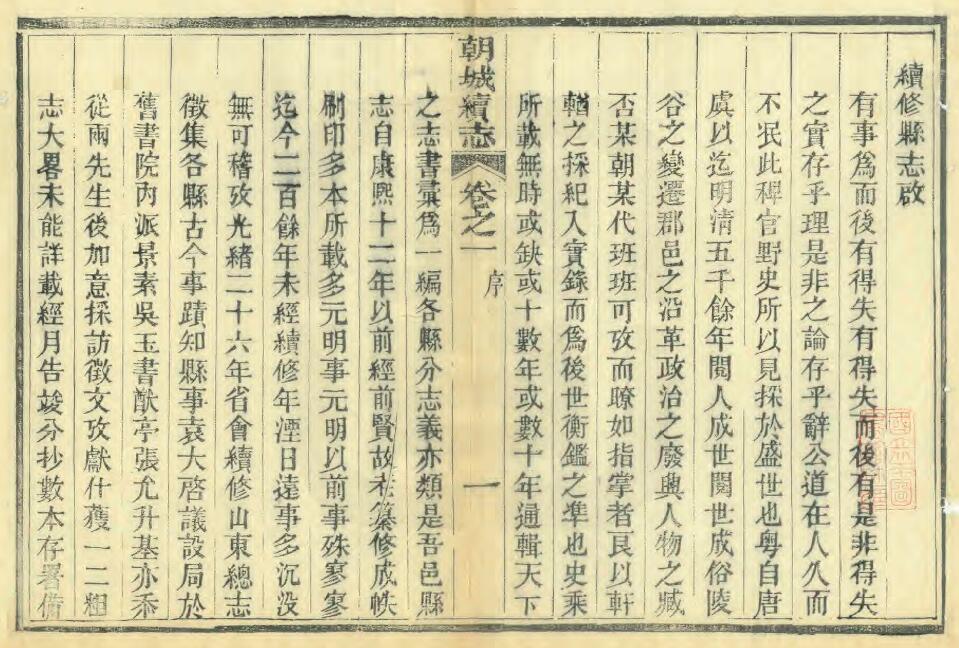 續修縣志啟
有事爲而後有得失有得失而後有是非得失
之實存乎理是非之論存乎辭公道在人久而
不泯此稗官野史所以見採於盛世也粤自唐
虞以迄明清五千餘年閱人成世閱世成俗陵
谷之變遷郡邑之沿革政治之廢興人物之臧
否某朝某代班班可攷而瞭如指掌者良以軒
輶之採紀入實錄而爲後世衡鑑之準也史乘
所載無時或缺或十數年或數十年通輯天下
朝城續志 卷之一 序 一
之志書彙爲一編各縣分志義亦類是吾邑縣
志自康熙十二年以前經前賢故老纂修成帙
刷印多本所載多元明事元明以前事殊寥寥
迄今二百餘年未經續修年湮日遠事多沉没
無可稽攷光緒二十六年省會續修山東總志
徵集各縣古今事蹟知縣事袁大啓議設局於
舊書院內派景素吳玉書猷亭張允升基亦忝
從兩先生後加意採訪徵文攷獻什獲一二粗
志大畧未能詳載經月告竣分抄數本存署備